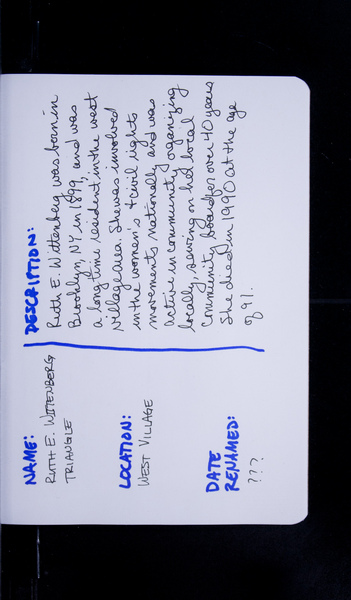 NAME:
RUTH E. WITTENBERG
TRIANGLE
LOCATION:
WEST VILLAGE
DATE
RENAMED:
???
DESCRIPTION:
Ruth E. Wittenberg was born in
Brooklyn, NY in 1899, and was
a long time resident in the west
village area. She was involved
in the women's + civil rights
movements nationally and was
active in community organizing
locally, serving on her local
community board for over 40 years
She died in 1990 at the age
of 91.